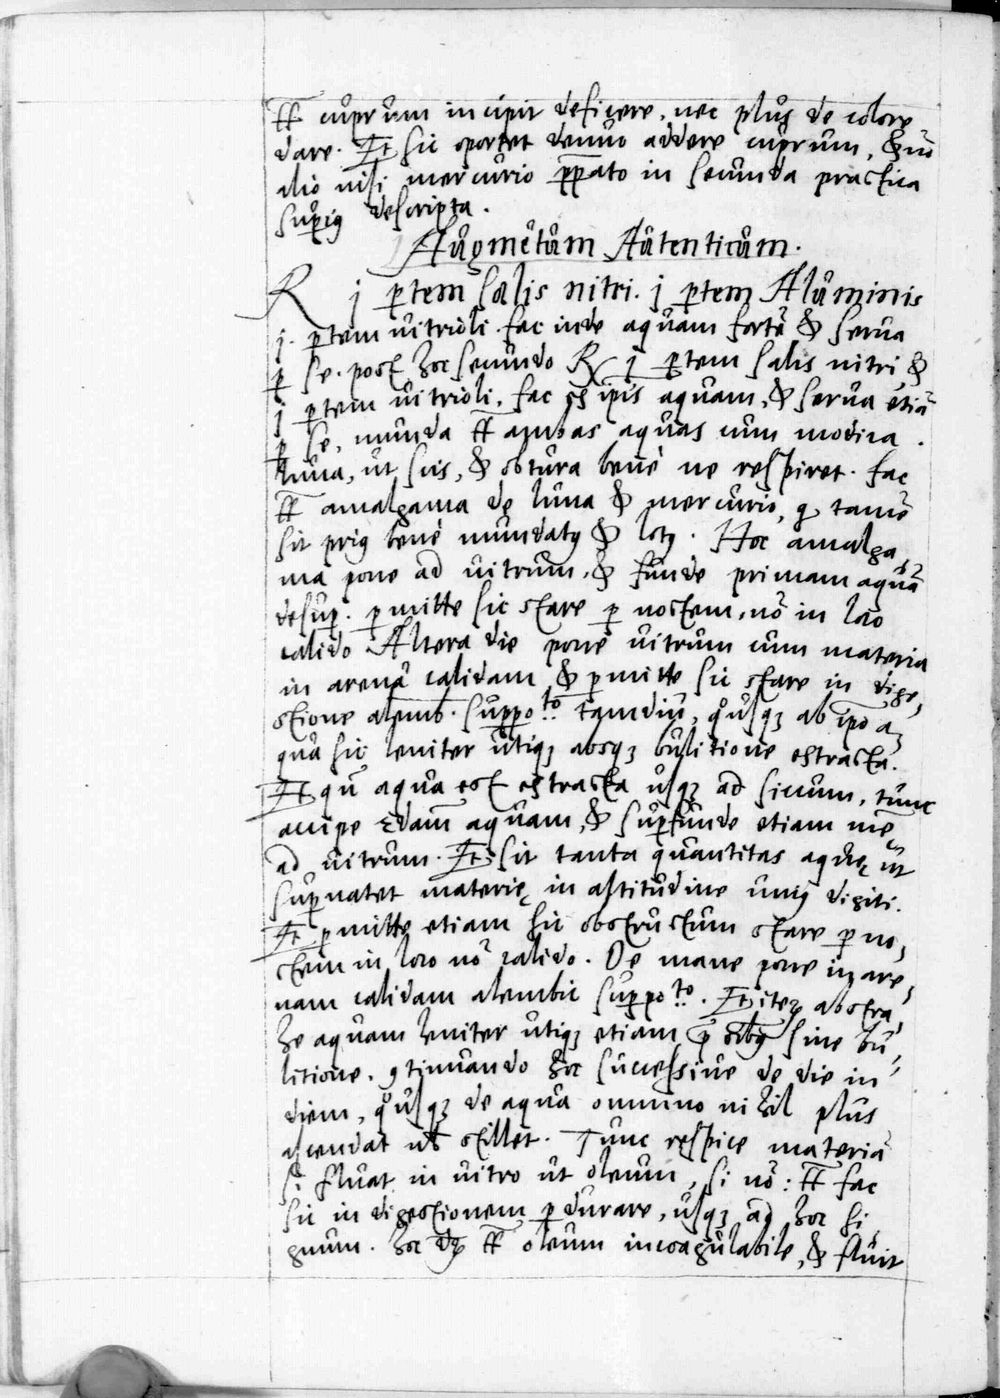 cuprum incipit deficere, nec plus de colore
dare. Et sic oportet denuo addere cuprum,
alio nisi mercurio pp̄ato in secunda practica
supig descripta.
Aúgmētúm Aútenticúm.
R j ptem salis nitri. j ptem Alúminis
j. ptem uitrioli. fac inde aquam fortē & serua
p se. post hoc secundo R j ptem salis nitri &
j ptem uitrioli, fac ex ipis aquam, & serua etiā
p se, munda ambas aquas cum modica.
luna, ut scis, & obtura bene ne respiret. fac
amalgama de luna & mercurio, q tamē
sit prig bene mundatg & lotg. Hoc amalga,
ma pone ad uitrum, & funde primam aquā
desup. pmitte sic stare p noctem, nō in loco
calido. Altera die pone uitrum cum materia
in arenā calidam & pmitte sic stare in dige,
stione alemb. suppo.to tamdiu, qusqȝ ab ipo a,
qua sic leniter utiqȝ absqȝ bulitione extracta.
Et qū aqua est extracta usqȝ ad siccum, tunc
accipe 2dam aquam, & supfunde etiam
ad uitrum. Et sit tanta quantitas aquę ut
supnatet materię in altitudine unig digiti.
Et pmitte etiam sic obstructum stare p no,
ctem in loco nō calido. De mane pone in are,
nam calidam alembic suppo.to. Et iteȝ abstra,
he aquam leniter utiqȝ etiam sine bu,
litione. 9tinuando hoc successiue de die in
diem, qusqȝ de aqua omnino nihil plus
ascendat stillet. Tunc respice materiā
si fluat in uitro ut oleum, si nō: fac
sic in digestionem pdurare, usqȝ ad hoc si,
gnum. hoc oleum incoagulabile, & fluit